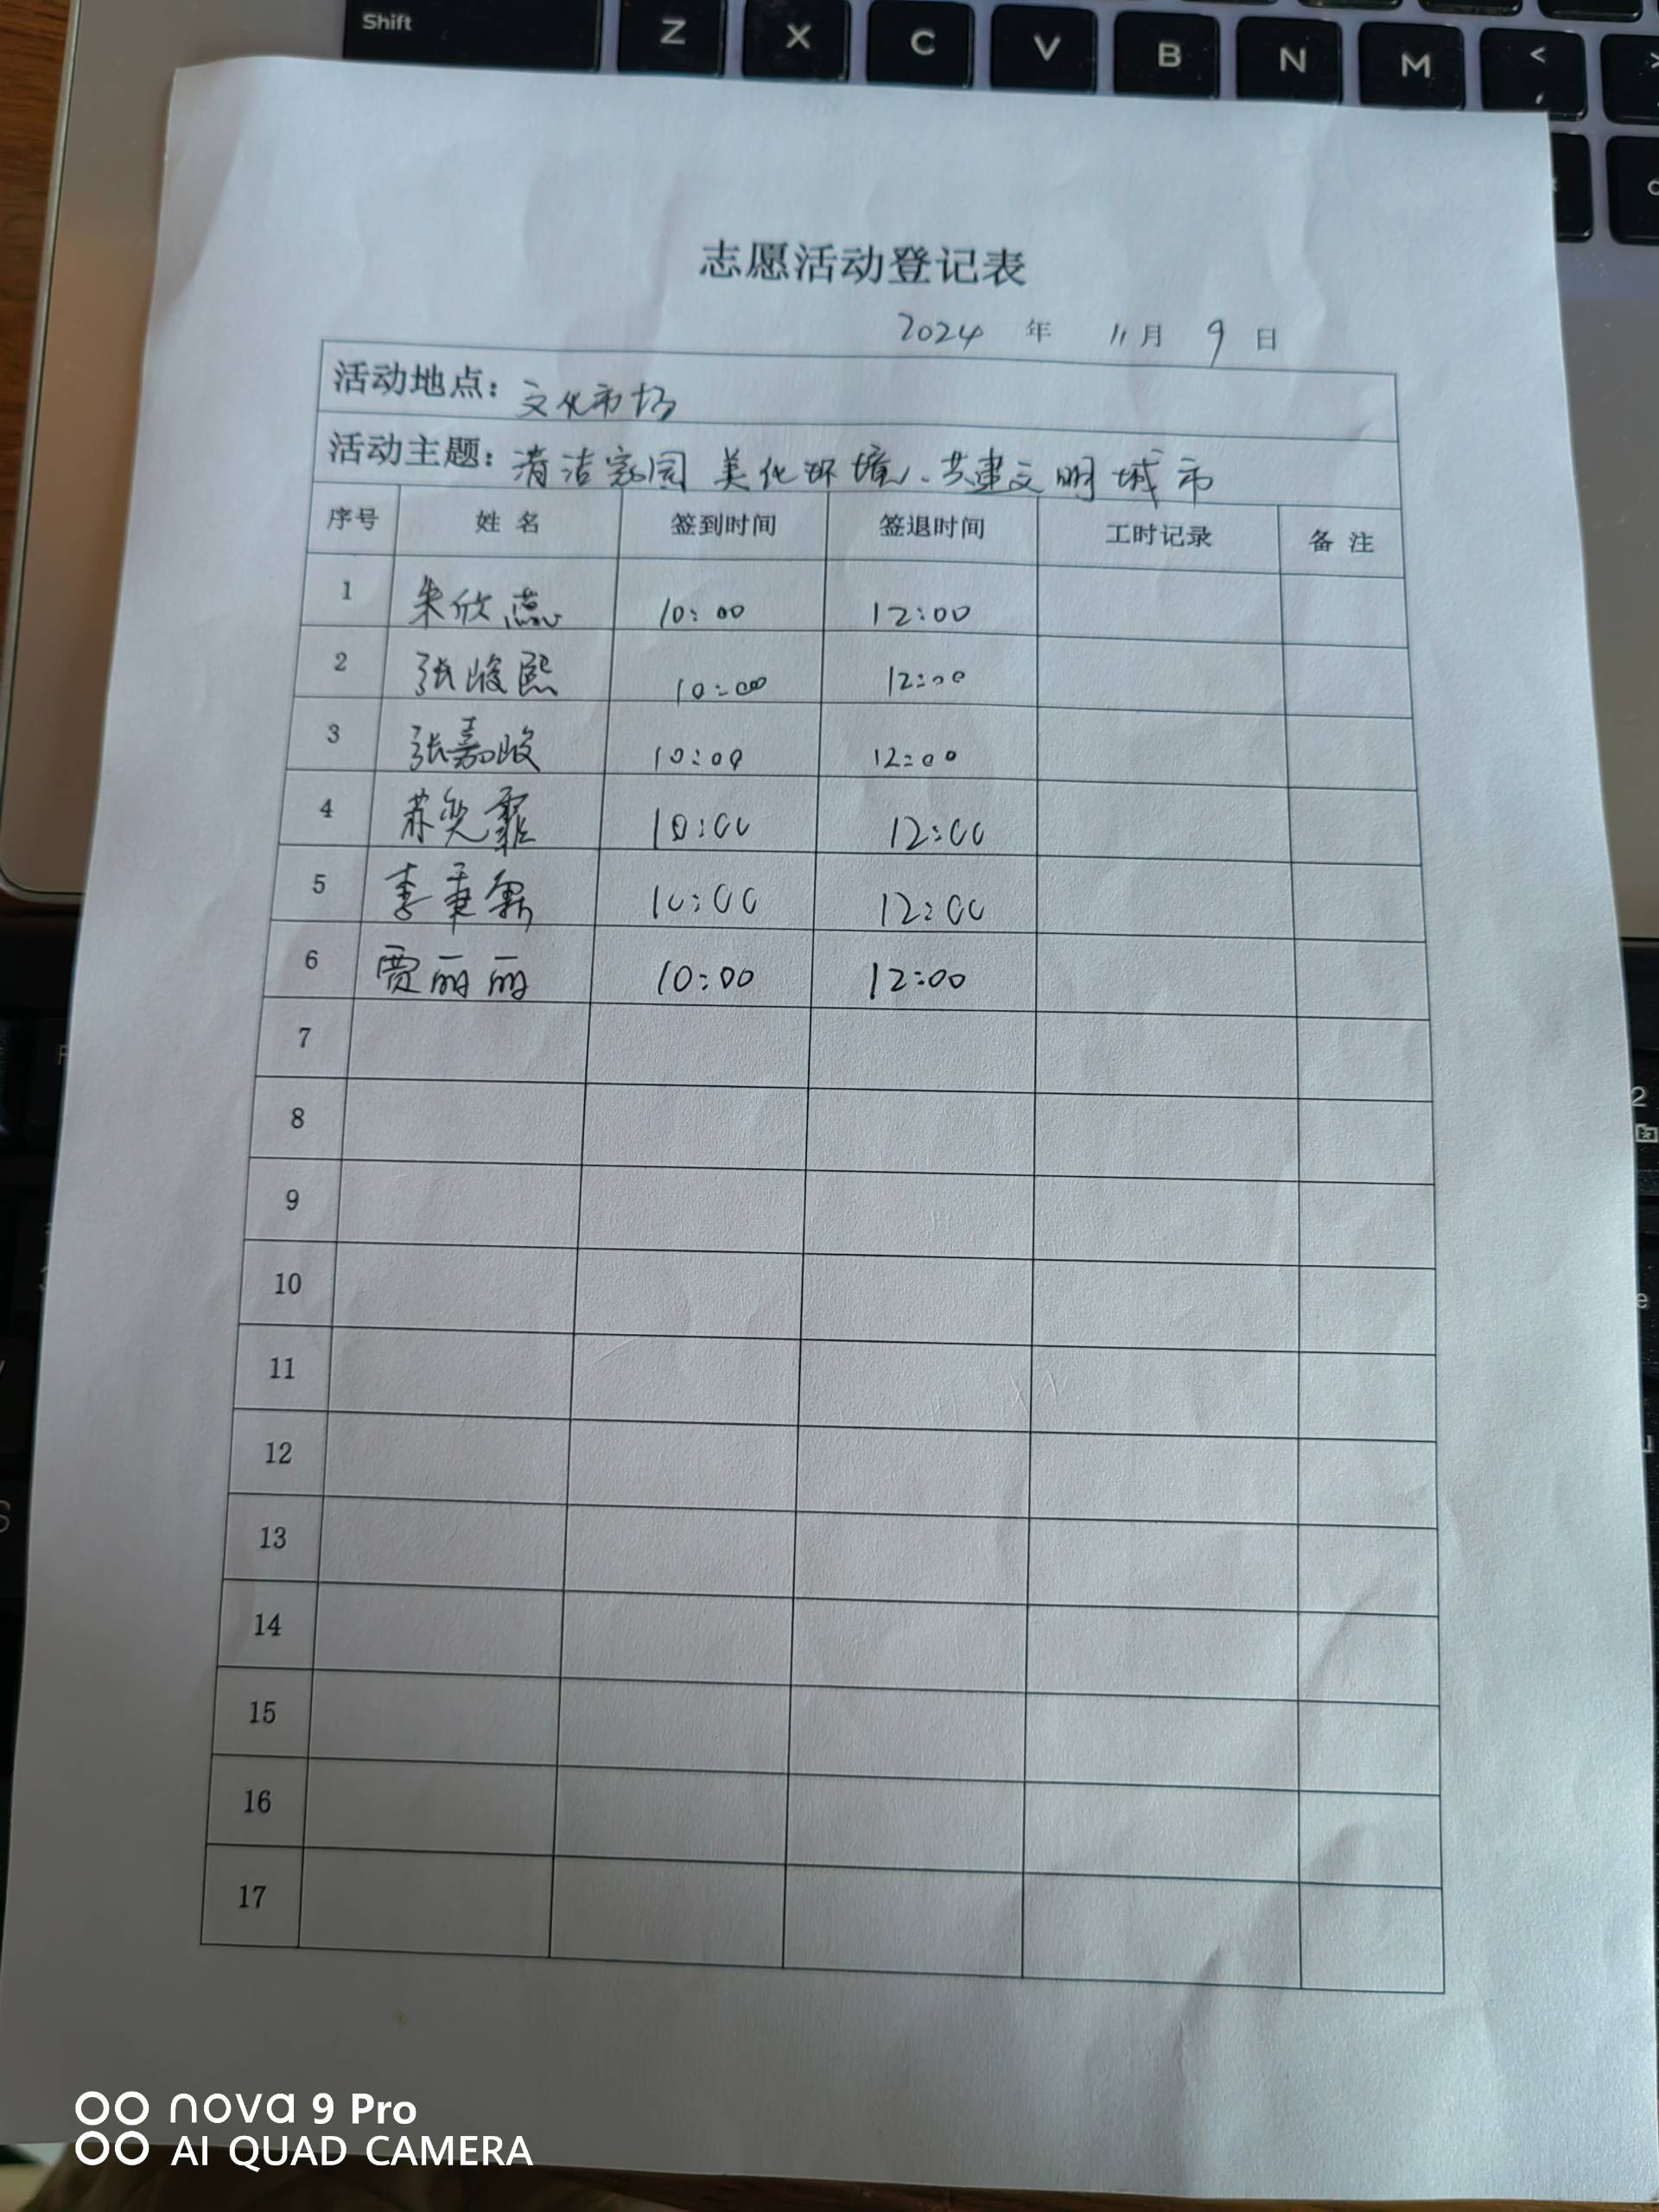 Shift Z X C V B N M <
,
志愿活动登记表
2024 年 11月 9 日
活动地点: 文化市场
活动主题: 清洁家园 美化环境、共建文明城市
序号 姓名 签到时间 签退时间 工时记录 备注
1 朱欣蕊 10:00 12:00
2 张峻熙 10:00 12:00
3 张嘉峻 10:00 12:00
4 苏奕霏 10:00 12:00
5 李秉 10:00 12:00
6 贾丽丽 10:00 12:00
7
8
9
10
11
12
13
14
15
16
17
nova 9 Pro
AI QUAD CAMERA